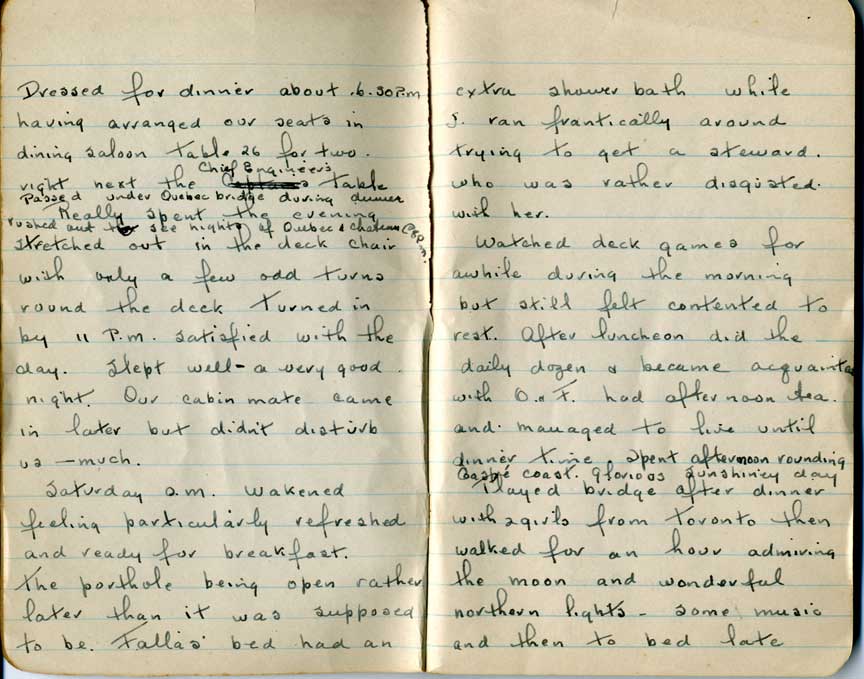 Dressed for dinner about .6.30P.m
having arranged our seats in
dining saloon Table 26 for two.
Chief Engineer's
right next the Captains table
Passed under Quebec bridge during dinner
Really spent the evening
rushed out to see lights of Quebec & Chateau (8P.m.
stretched out in the deck chair
with only a few odd turns
round the deck Turned in
by 11 P.m. satisfied with the
day. Slept well - a very good
night. Our cabin mate came
in later but didn't disturb
us — much.
Saturday a.m. wakened
feeling particularly refreshed
and ready for breakfast.
The porthole being open rather
later than it was supposed
to be. Falla's bed had an
extra shower bath while
J. ran frantically around
trying to get a steward.
who was rather disgusted.
with her.
Watched deck games for
awhile during the morning
but still felt contented to
rest. After luncheon did the
daily dozen & became acquainted
with O. & F. had afternoon tea.
and managed to live until
dinner time. Spent afternoon rounding
Gaspé coast. glorious sunshiney day
Played bridge after dinner
with 2 girls from Toronto then
walked for an hour admiring
the moon and wonderful
northern lights - some music
and then to bed late